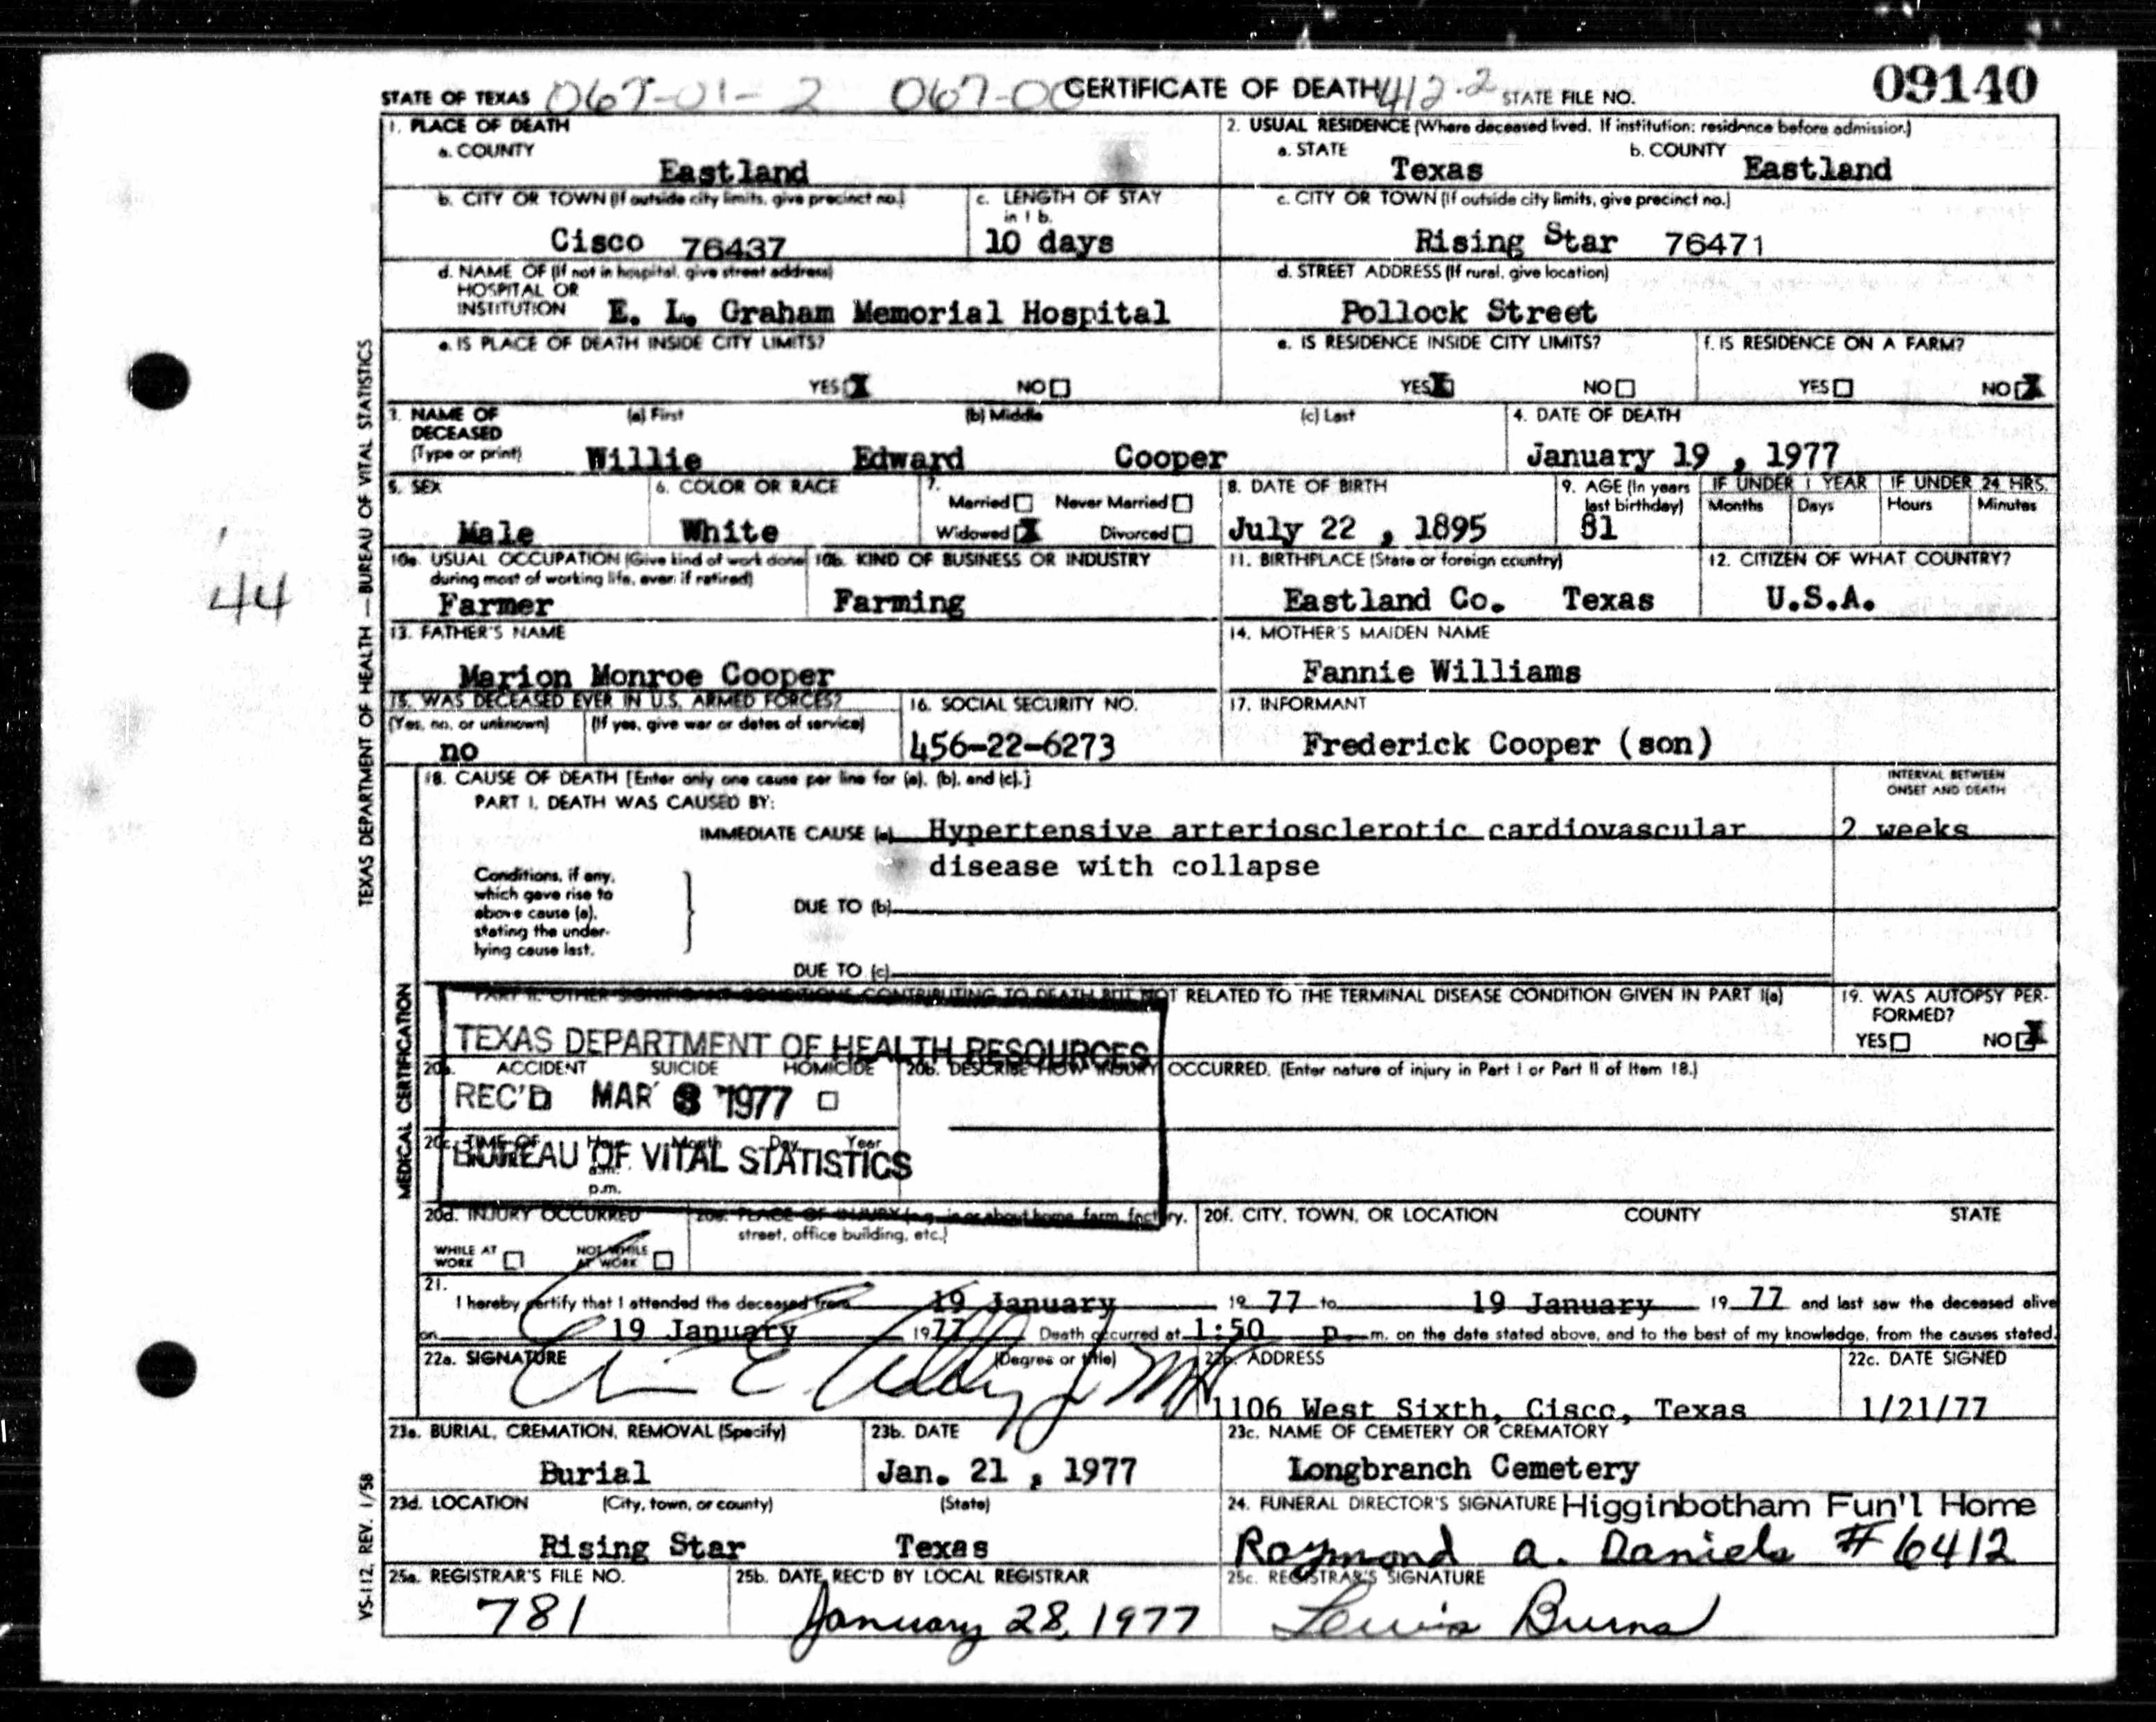 STATE OF TEXAS 067-01-2 067-00 CERTIFICATE OF DEATH 412.2 STATE FILE NO. 09140
1. PLACE OF DEATH
a. COUNTY
Eastland
2. USUAL RESIDENCE (Where deceased lived. If institution: residnce before admission.)
a. STATE b. COUNTY
Texas Eastland
b. CITY OR TOWN (If outside city limits, give precinct no.)
Cisco 76437
c. LENGTH OF STAY
in 1 b.
10 days
c. CITY OR TOWN (If outside city limits, give precinct no.)
Rising Star 76471
d. NAME OF (If not in hospital, give street address)
HOSPITAL OR
INSTITUTION E. L. Graham Memorial Hospital
d. STREET ADDRESS (If rural, give location)
Pollock Street
e. IS PLACE OF DEATH INSIDE CITY LIMITS?
YES X NO
e. IS RESIDENCE INSIDE CITY LIMITS?
YES X NO
f. IS RESIDENCE ON A FARM?
YES NO X
3. NAME OF
DECEASED
(Type or print)
(a) First (b) Middle (c) Last
Willie Edward Cooper
4. DATE OF DEATH
January 19 , 1977
5. SEX
Male
6. COLOR OR RACE
White
7.
Married Never Married
Widowed X Divorced
8. DATE OF BIRTH
July 22 , 1895
9. AGE (In years
last birthday)
81
IF UNDER 1 YEAR IF UNDER 24 HRS.
Months Days Hours Minutes
10a. USUAL OCCUPATION (Give kind of work done
during most of working life, even if retired)
Farmer
10b. KIND OF BUSINESS OR INDUSTRY
Farming
11. BIRTHPLACE (State or foreign country)
Eastland Co. Texas
12. CITIZEN OF WHAT COUNTRY?
U.S.A.
13. FATHER'S NAME
Marion Monroe Cooper
14. MOTHER'S MAIDEN NAME
Fannie Williams
15. WAS DECEASED EVER IN U.S. ARMED FORCES?
(Yes, no, or unknown) (If yes, give war or dates of service)
no
16. SOCIAL SECURITY NO.
456-22-6273
17. INFORMANT
Frederick Cooper (son)
18. CAUSE OF DEATH [Enter only one cause per line for (a), (b), and (c).]
INTERVAL BETWEEN
ONSET AND DEATH
PART I. DEATH WAS CAUSED BY:
IMMEDIATE CAUSE (a) Hypertensive arteriosclerotic cardiovascular 2 weeks
disease with collapse
Conditions, if any,
which gave rise to
above cause (a),
stating the under-
lying cause last.
DUE TO (b)
DUE TO (c)
PART II. OTHER SIGNIFICANT CONDITIONS CONTRIBUTING TO DEATH BUT NOT RELATED TO THE TERMINAL DISEASE CONDITION GIVEN IN PART I(a)
19. WAS AUTOPSY PER-
FORMED?
YES NO X
TEXAS DEPARTMENT OF HEALTH RESOURCES
20a. ACCIDENT SUICIDE HOMICIDE
20b. DESCRIBE HOW INJURY OCCURRED. (Enter nature of injury in Part I or Part II of Item 18.)
REC'D MAR 8 1977
20c. TIME OF Hour Month Day Year
BUREAU OF VITAL STATISTICS
a.m.
p.m.
20d. INJURY OCCURRED
WHILE AT
WORK
NOT WHILE
AT WORK
20e. PLACE OF INJURY (e.g., in or about home, farm, factory,
street, office building, etc.)
20f. CITY, TOWN, OR LOCATION COUNTY STATE
21.
I hereby certify that I attended the deceased from 19 January 19 77 to 19 January 19 77 and last saw the deceased alive
on 19 January 19 77 Death occurred at 1:50 p.m. on the date stated above, and to the best of my knowledge, from the causes stated.
22a. SIGNATURE (Degree or title)
22b. ADDRESS
1106 West Sixth, Cisco, Texas
22c. DATE SIGNED
1/21/77
23a. BURIAL, CREMATION, REMOVAL (Specify)
Burial
23b. DATE
Jan. 21 , 1977
23c. NAME OF CEMETERY OR CREMATORY
Longbranch Cemetery
23d. LOCATION (City, town, or county) (State)
Rising Star Texas
24. FUNERAL DIRECTOR'S SIGNATURE Higginbotham Fun'l Home
Raymond A. Daniels # 6412
25a. REGISTRAR'S FILE NO.
781
25b. DATE REC'D BY LOCAL REGISTRAR
January 28, 1977
25c. REGISTRAR'S SIGNATURE
Lewis Burns
TEXAS DEPARTMENT OF HEALTH — BUREAU OF VITAL STATISTICS
MEDICAL CERTIFICATION
VS-112, REV. 1/58
44